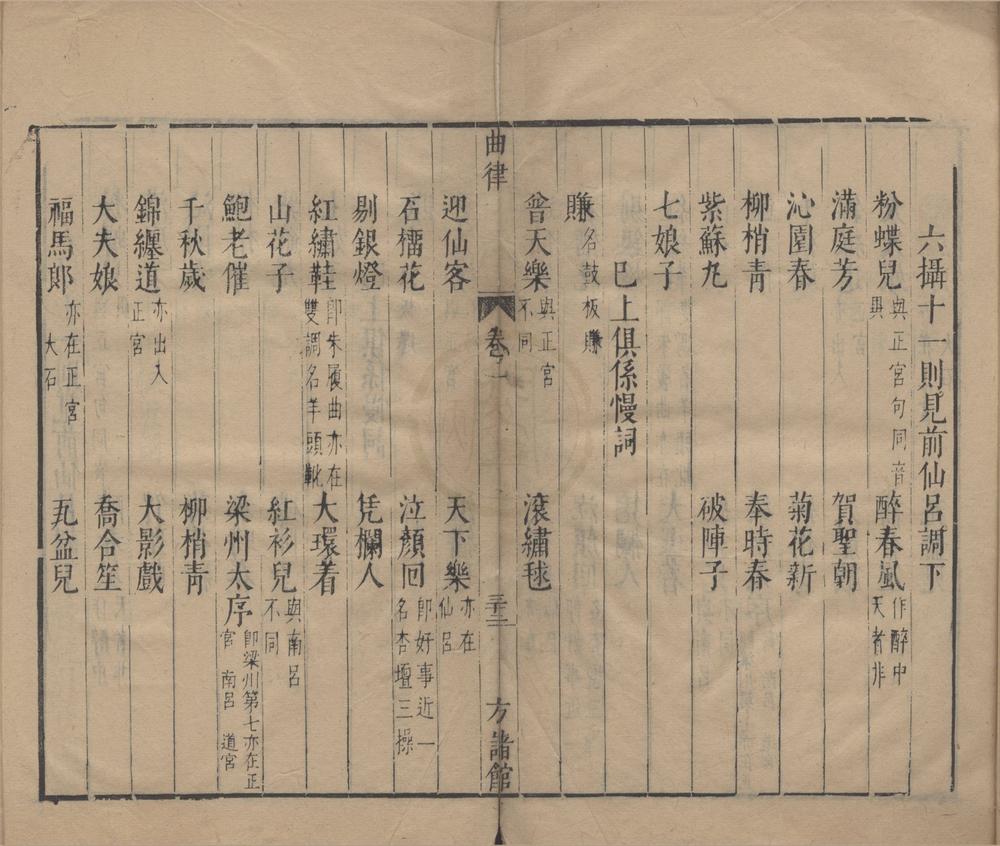 六攝十一則見前仙呂調下
粉蝶兒與正宮句同音異 醉春風作醉中天者非
滿庭芳 賀聖朝
沁園春 菊花新
柳梢青 奉時春
紫蘇丸 破陣子
七娘子
已上俱係慢詞
賺名鼓板賺
普天樂與正宮不同 滾繡毬
曲律 卷一 三十三 方諸館
迎仙客 天下樂亦在仙呂
石榴花 泣顏回卽好事近一名杏壇三操
剔銀燈 凭欄人
紅繡鞋卽朱履曲亦在雙調名羊頭靴 大環着
山花子 紅衫兒與南呂不同
鮑老催 梁州太序卽梁州第七亦在正宮 南呂 道宮
千秋歲 柳梢青
錦纏道亦出入正宮 大影戲
大夫娘 喬合笙
福馬郎亦在正宮大石 瓦盆兒